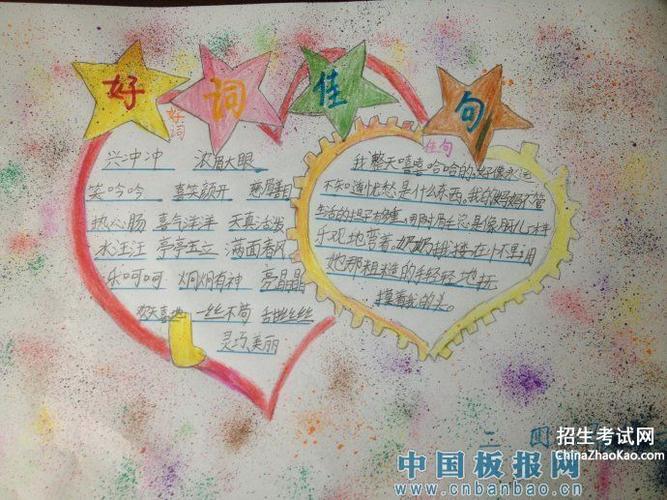 好词佳句
好词
兴冲冲 浓眉大眼
笑吟吟 喜笑颜开 慈眉善目
热心肠 喜气洋洋 天真活泼
水汪汪 亭亭玉立 满面春风
乐呵呵 炯炯有神 亮晶晶
欢天喜地 一丝不苟 甜丝丝
灵巧美丽
佳句
我整天嘻嘻哈哈的,好像永远
不知道忧愁是什么东西。我的妈妈不管
生活的担子有多重,两时眉毛总是像月儿一样
乐观地弯着。奶奶把我搂在怀里,用
她那粗糙的手轻轻地抚
摸着我的头。
二
招生考试网
ChinaZhaoKao.com
中国板报网
www.cnbanbao.cn